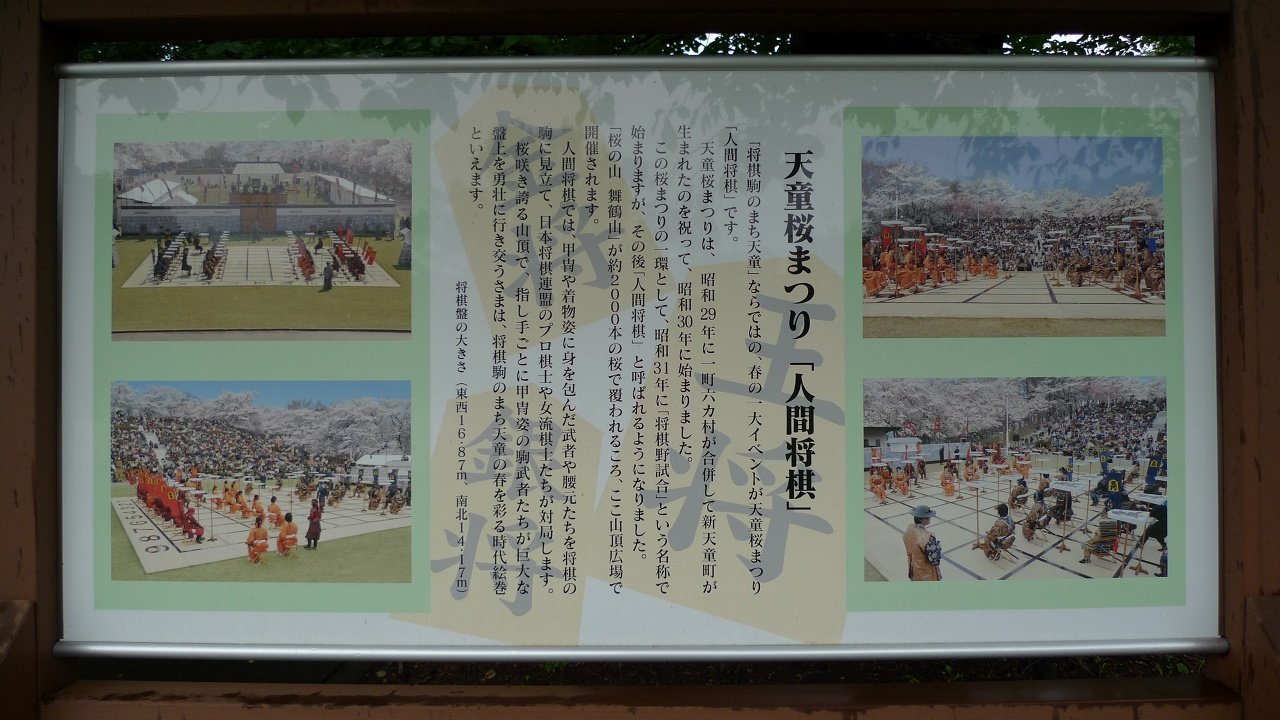 天童桜まつり「人間将棋」
「将棋駒のまち天童」ならではの、春の一大イベントが天童桜まつり
「人間将棋」です。
天童桜まつりは、昭和29年に一町六カ村が合併して新天童町が
生まれたのを祝って、昭和30年に始まりました。
この桜まつりの一環として、昭和31年に「将棋野試合」という名称で
始まりますが、その後「人間将棋」と呼ばれるようになりました。
『桜の山 舞鶴山』が約2000本の桜で覆われるころ、ここ山頂広場で
開催されます。
人間将棋では、甲冑や着物姿に身を包んだ武者や腰元たちを将棋の
駒に見立て、日本将棋連盟のプロ棋士や女流棋士たちが対局します。
桜咲き誇る山頂で、指し手ごとに甲冑姿の駒武者たちが巨大な
盤上を勇壮に行き交うさまは、将棋駒のまち天童の春を彩る時代絵巻
といえます。
将棋盤の大きさ（東西16.87m、南北14.17m）
王将
金将